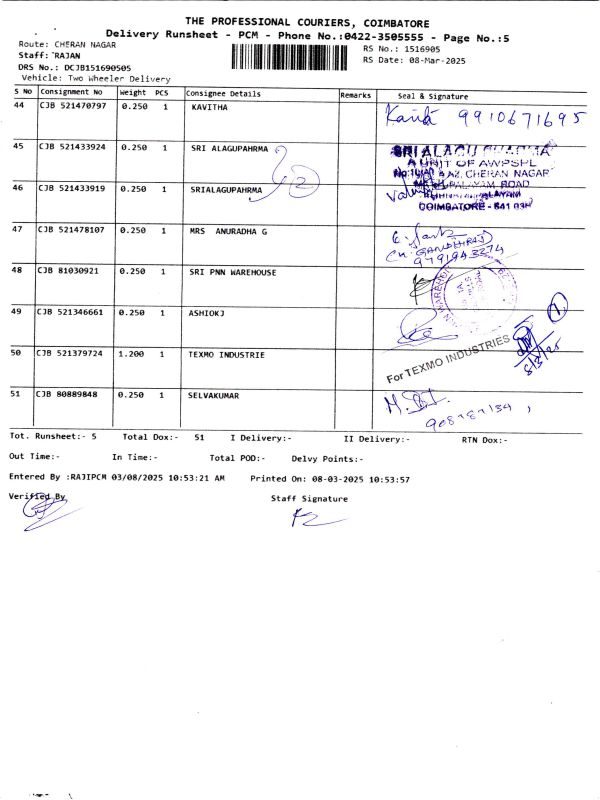 THE PROFESSIONAL COURIERS, COIMBATORE
Delivery Runsheet - PCM - Phone No.:0422-3505555 - Page No.:5
Route: CHERAN NAGAR
RS No.: 1516905
Staff: RAJAN
RS Date: 08-Mar-2025
DRS No.: DCJB151690505
Vehicle: Two Wheeler Delivery
S NO Consignment No Weight PCS Consignee Details Remarks Seal & Signature
44 CJB 521470797 0.250 1 KAVITHA 9910671695
45 CJB 521433924 0.250 1 SRI ALAGUPAHRMA
SRI ALAGU
A UNIT OF AWPSPL
CHERAN NAGAR
ROAD
COIMBATORE - 641
46 CJB 521433919 0.250 1 SRIALAGUPAHRMA 2
47 CJB 521478107 0.250 1 MRS ANURADHA G
9791943274
48 CJB 81030921 0.250 1 SRI PNN WAREHOUSE
49 CJB 521346661 0.250 1 ASHIOKJ
1
50 CJB 521379724 1.200 1 TEXMO INDUSTRIE
For TEXMO INDUSTRIES
8/3/25
51 CJB 80889848 0.250 1 SELVAKUMAR
Tot. Runsheet:- 5 Total Dox:- 51 I Delivery:- II Delivery:- RTN Dox:-
Out Time:- In Time:- Total POD:- Delvy Points:-
Entered By :RAJIPCM 03/08/2025 10:53:21 AM Printed On: 08-03-2025 10:53:57
Verified By Staff Signature